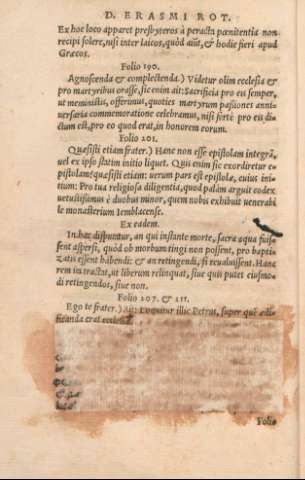 D. ERASMI ROT.
Ex hoc loco apparet presbyteros à peracta pœnitentia non
recipi solere, nisi inter laicos, quòd aiũt, & hodie fieri apud
Græcos.
Folio 190.
Agnoscenda & complectenda.) Videtur olim ecclesia &
pro martyribus orasse, sic enim ait: Sacrificia pro eis semper,
ut meministis, offerimus, quoties martyrum passiones anni-
uersaria commemoratione celebramus, nisi fortè pro eis di-
ctum est, pro eo quod erat, in honorem eorum.
Folio 203.
Quæsisti etiam frater.) Hanc non esse epistolam integrã,
uel ex ipso statim initio liquet. Quis enim sic exordiretur e-
pistolam? quæsisti etiam: uerum pars est epistolæ, cuius ini-
tium: Pro tua religiosa diligentia, quod palàm arguit codex
uetustissimus è duobus minor, quem nobis exhibuit venerabi
le monasterium Iemblacense.
Ex eadem.
In hac disputatur, an qui instante morte, sacra aqua fuis-
sent aspersi, quòd ob morbum tingi non possent, pro bapti-
zatis essent habendi: & an retingendi, si reualuissent. Hanc
rem in tractat, ut liberum relinquat, siue quis putet eiusmo-
di retingendos, siue non.
Folio 207. & 211.
Ego te frater.) Ait: Loquitur illic Petrus, super quẽ ædi-
ficanda erat ecclesia
Folio